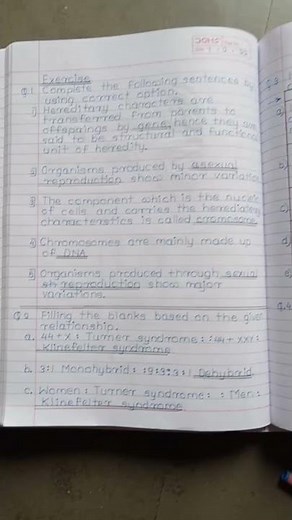 Exercise
Q.1 Complete the following sentences by
using correct option.
1) Hereditary characters are
transferred from parents to
offsprings by gene hence they are
said to be structural and functional
unit of heredity.
2) Organisms produced by asexual
reproduction show minor variation
3) The component which is the nuclei
of cells and carries the hereditary
characteristics is called cromosome
4) Chromosomes are mainly made up
of DNA
5) Organisms produced through sexual
reproduction show major
variations.
Q.2 Filling the blanks based on the given
relationship.
a. 44+X : Turner syndrome : : 44+XXY :
Klinefelter syndrome
b. 3:1 Monohybrid : : 9:3:3:1 Dehybrid
c. Women : Turner syndrome : : Men :
Klinefelter syndrome